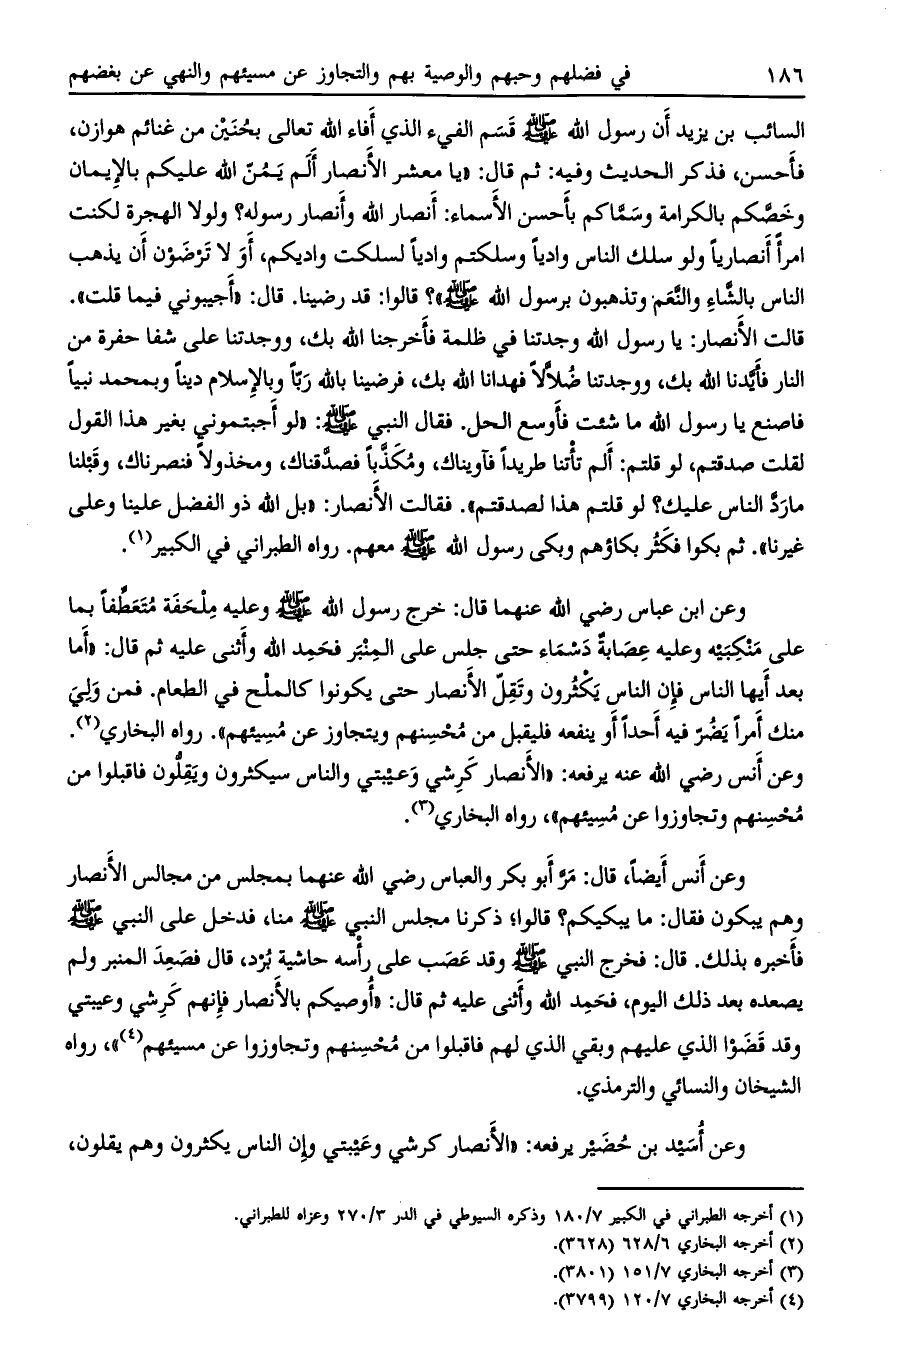 ١٨٦ في فضلهم وحبهم والوصية بهم والتجاوز عن مسيئهم والنهي عن بغضهم
السائب بن يزيد أَن رسول الله ﷺ قَسَم الفيء الذي أَفاء الله تعالى بحُنَيْن من غنائم هوازن،
فأَحسن، فذكر الحديث وفيه: ثم قال: «يا معشر الأَنصار أَلَم يَمُنّ الله عليكم بالإِيمان
وخَصَّكم بالكرامة وسَمَّاكم بأَحسن الأَسماء: أَنصار الله وأَنصار رسوله؟ ولولا الهجرة لكنت
امرأً أَنصارياً ولو سلك الناس وادياً وسلكتم وادياً لسلكت واديكم، أَوَ لا تَرْضَوْن أَن يذهب
الناس بالشَّاءِ والنَّعَم وتذهبون برسول الله ﷺ»؟ قالوا: قد رضينا. قال: «أَجيبوني فيما قلت».
قالت الأَنصار: يا رسول الله وجدتنا في ظلمة فأَخرجنا الله بك، ووجدتنا على شفا حفرة من
النار فأَيَّدنا الله بك، ووجدتنا ضُلاَّلاً فهدانا الله بك، فرضينا بالله رَبّاً وبالإِسلام ديناً وبمحمد نبياً
فاصنع يا رسول الله ما شئت فأَوسع الحل. فقال النبي ﷺ: «لو أَجبتموني بغير هذا القول
لقلت صدقتم، لو قلتم: أَلم تأْتنا طريداً فآويناك، ومُكَذَّباً فصدَّقناك، ومخذولاً فنصرناك، وقَبْلنا
مارَدَّ الناس عليك؟ لو قلتم هذا لصدقتم». فقالت الأَنصار: «بل الله ذو الفضل علينا وعلى
غيرنا». ثم بكوا فكَثُر بكاؤهم وبكى رسول الله ﷺ معهم. رواه الطبراني في الكبير(١).
وعن ابن عباس رضي الله عنهما قال: خرج رسول الله ﷺ وعليه مِلْحَفَة مُتَعَطِّفاً بما
على مَنْكِبَيْه وعليه عِصَابةٌ دَسْمَاء حتى جلس على المِنْبَر فحَمِد الله وأَثنى عليه ثم قال: «أَما
بعد أَيها الناس فإِن الناس يَكْثُرون وتَقِلّ الأَنصار حتى يكونوا كالمِلْح في الطعام. فمن وَلِيَ
منك أَمراً يَضُرّ فيه أَحداً أَو ينفعه فليقبل من مُحْسِنهم ويتجاوز عن مُسِيئهم». رواه البخاري(٢).
وعن أَنس رضي الله عنه يرفعه: «الأَنصار كَرِشي وَعَيْبتي والناس سيكثرون ويَقِلُّون فاقبلوا من
مُحْسِنهم وتجاوزوا عن مُسِيئهم»، رواه البخاري(٣).
وعن أَنَس أَيضاً، قال: مَرَّ أَبو بكر والعباس رضي الله عنهما بمجلس من مجالس الأَنصار
وهم يبكون فقال: ما يبكيكم؟ قالوا؛ ذكرنا مجلس النبي ﷺ منا، فدخل على النبي ﷺ
فأَخبره بذلك. قال: فخرج النبي ﷺ وقد عَصَب على رأْسه حاشية بُرْد، قال فصَعِدَ المنبر ولم
يصعده بعد ذلك اليوم، فحَمِد الله وأَثنى عليه ثم قال: «أُوصيكم بالأَنصار فإِنهم كَرِشي وعيبتي
وقد قَضَوْا الذي عليهم وبقي الذي لهم فاقبلوا من مُحْسِنهم وتجاوزوا عن مسيئهم(٤)»، رواه
الشيخان والنسائي والترمذي.
وعن أُسَيْد بن حُضَيْر يرفعه: «الأَنصار كرشي وعَيْبتي وإِن الناس يكثرون وهم يقلون،
(١) أخرجه الطبراني في الكبير ٧/١٨٠ وذكره السيوطي في الدر ٣/٢٧٠ وعزاه للطبراني.
(٢) أخرجه البخاري ٦/٦٢٨ (٣٦٢٨).
(٣) أخرجه البخاري ٧/١٥١ (٣٨٠١).
(٤) أخرجه البخاري ٧/١٢٠ (٣٧٩٩).